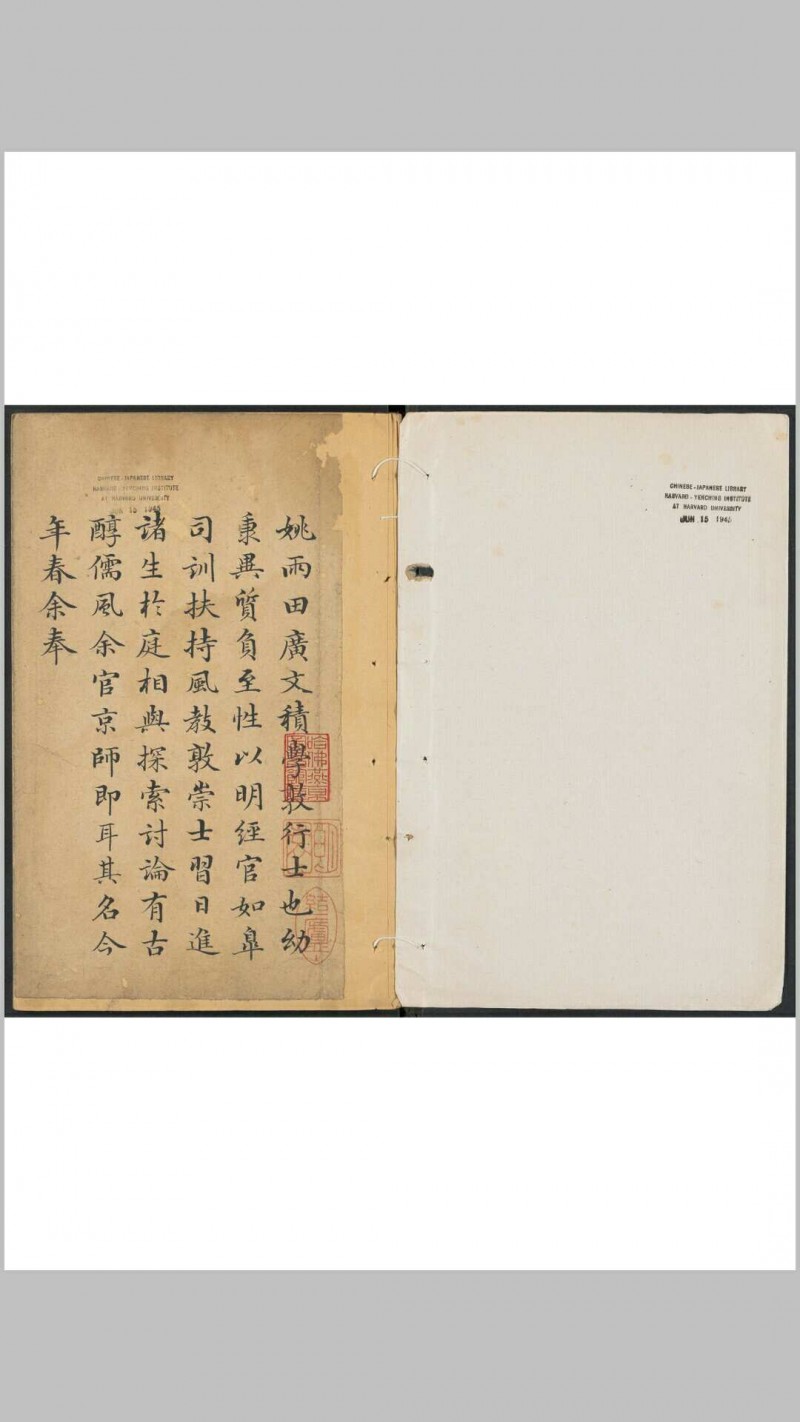 姚雨田廣文積學敦行士也幼
稟異質負至性以明經官如臯
司訓扶持風教敦崇士習日進
諸生於庭相與探索討論有古
醇儒風余官京師即耳其名今
年春余奉
CHINESE - JAPANESE LIBRARY
HARVARD - YENCHING INSTITUTE
AT HARVARD UNIVERSITY
JUN 15 194
CHINESE - JAPANESE LIBRARY
HARVARD - YENCHING INSTITUTE
AT HARVARD UNIVERSITY
JUN 15 194